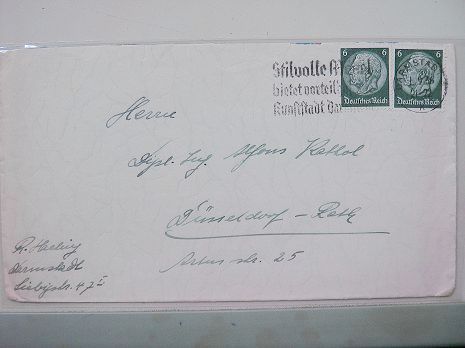 Stilvolle
bietet vorteil
Kunststadt Da
6 6
Deutsches Reich
6 6
Deutsches Reich
RMSTA
Herrn
Dipl. Ing. Alfons
Düsseldorf - Rath
Artus str. 25
Darmstadt
Liebigstr. 47 I